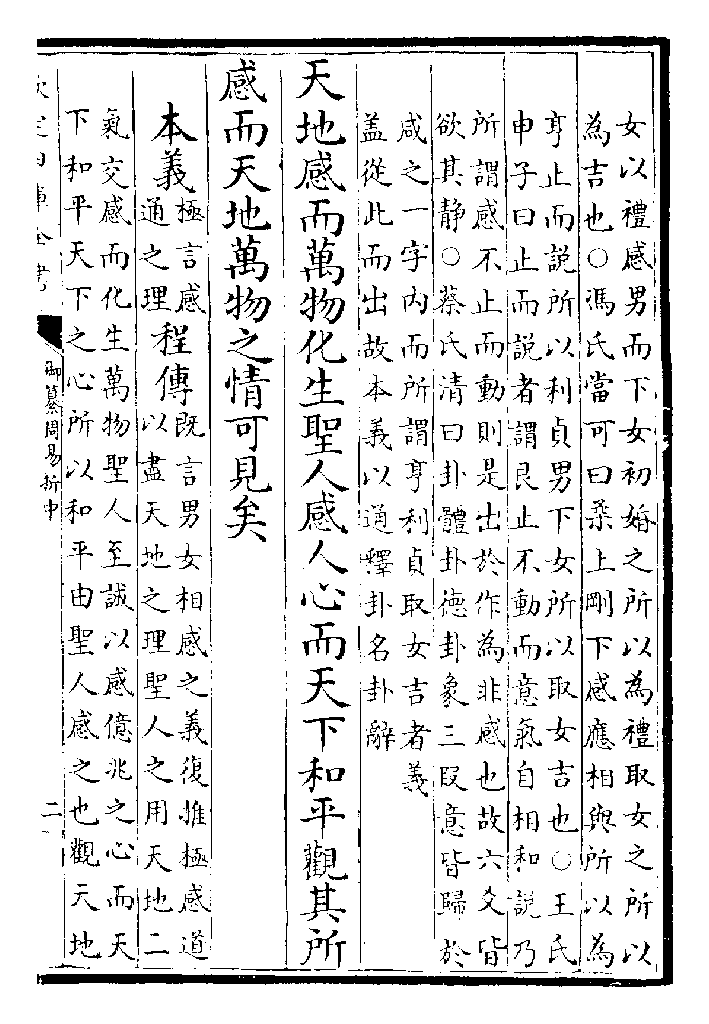 女以禮感男而下女初婚之所以為禮取女之所以
為吉也○馮氏當可曰柔上剛下感應相與所以為
亨止而説所以利貞男下女所以取女吉也○王氏
申子曰止而説者謂艮止不動而意氣自相和説乃
所謂感不止而動則是出於作為非感也故六爻皆
欲其静○蔡氏清曰卦體卦德卦象三段意皆歸於
咸之一字内而所謂亨利貞取女吉者義
葢從此而出故本義以通釋卦名卦辭
天地感而萬物化生聖人感人心而天下和平觀其所
感而天地萬物之情可見矣
本義極言感
通之理程傳既言男女相感之義復推極感道
以盡天地之理聖人之用天地二
氣交感而化生萬物聖人至誠以感億兆之心而天
下和平天下之心所以和平由聖人感之也觀天地
欽定四庫全書
御纂周易折中
二